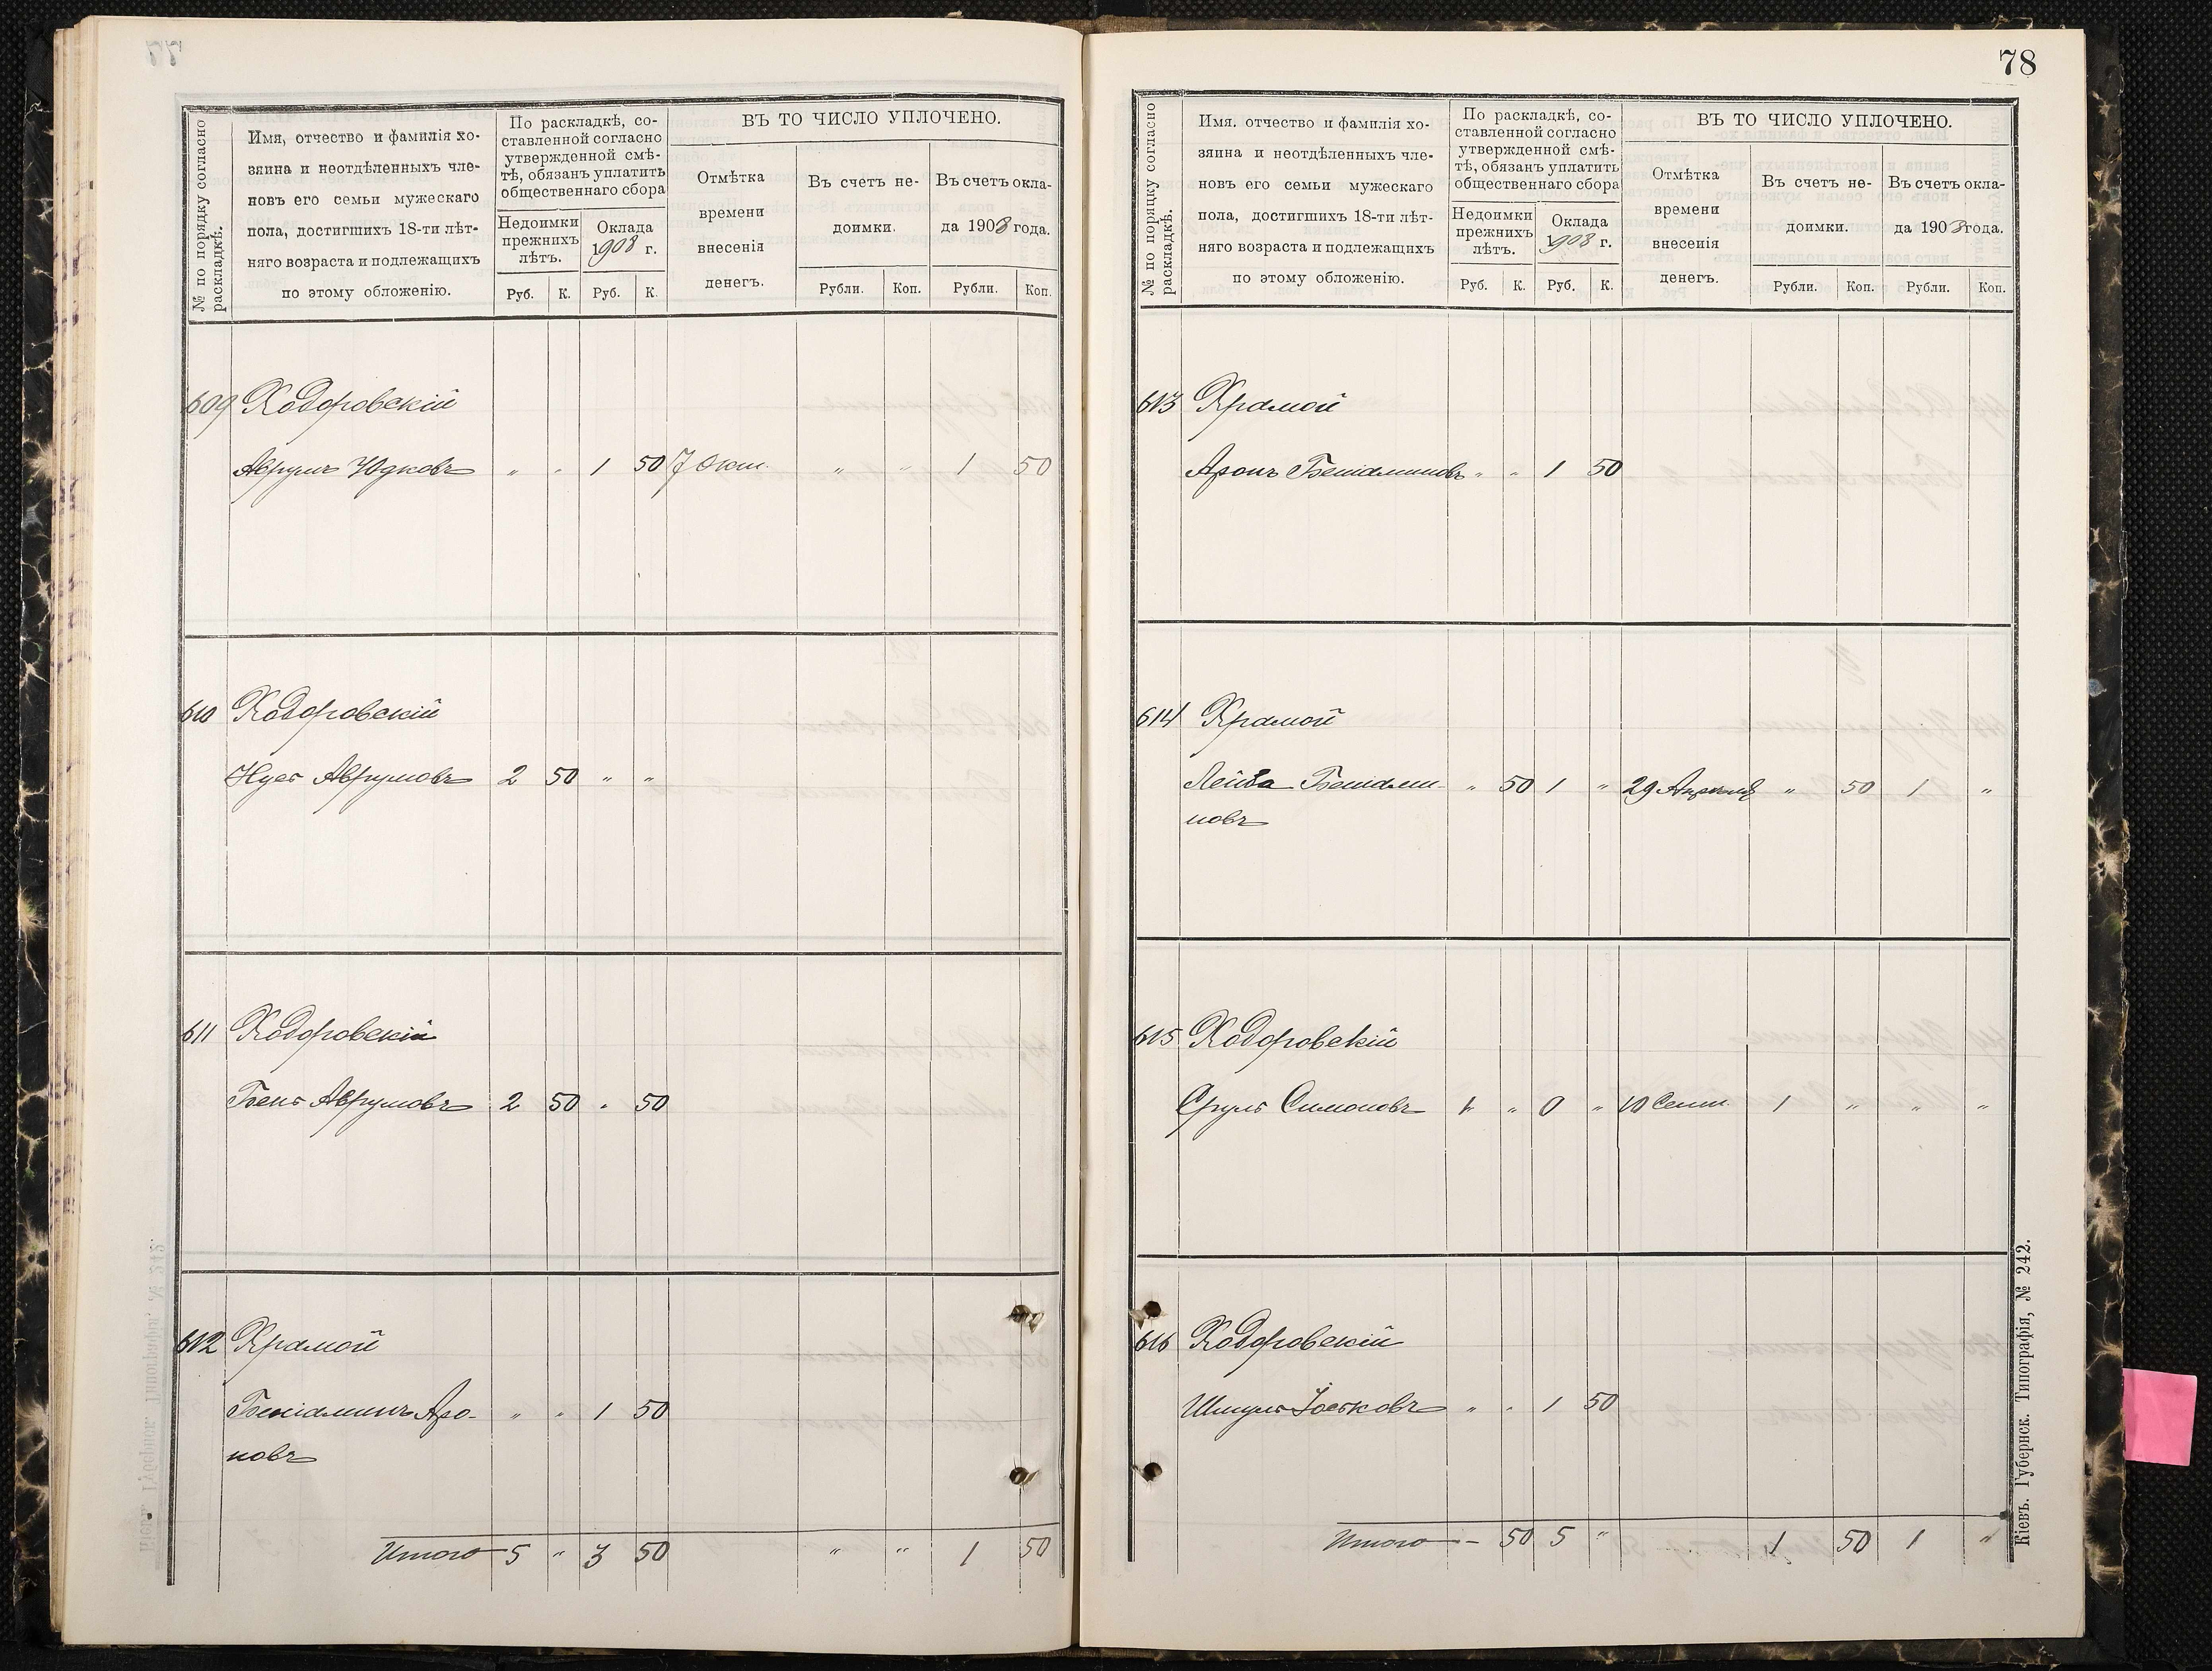 78
№ по порядку согласно раскладкѣ.
Имя, отчество и фамилія хо-
зяина и неотдѣленныхъ чле-
новъ его семьи мужескаго
пола, достигшихъ 18-ти лѣт-
няго возраста и подлежащихъ
по этому обложенію.
По раскладкѣ, со-
ставленной согласно
утвержденной смѣ-
тѣ, обязанъ уплатить
общественнаго сбора
Недоимки
прежнихъ
лѣтъ.
Оклада
1908 г.
Руб. К. Руб. К.
ВЪ ТО ЧИСЛО УПЛОЧЕНО.
Отмѣтка
времени
внесенія
денегъ.
Въ счетъ не-
доимки.
Рубли. Коп.
Въ счетъ окла-
да 1908 года.
Рубли. Коп.
609 Ходоровскій
Аврумъ Юдковъ " " 1 50 7 Окт. " " 1 50
610 Ходоровскій
Нусъ Аврумовъ 2 50 " "
611 Ходоровскій
Бенъ Аврумовъ 2 50 " 50
612 Хромой
Беніаминъ Аро-
новъ " " 1 50
Итого 5 " 3 50 " " 1 50
№ по порядку согласно раскладкѣ.
Имя. отчество и фамилія хо-
зяина и неотдѣленныхъ чле-
новъ его семьи мужескаго
пола, достигшихъ 18-ти лѣт-
няго возраста и подлежащихъ
по этому обложенію.
По раскладкѣ, со-
ставленной согласно
утвержденной смѣ-
тѣ, обязанъ уплатить
общественнаго сбора
Недоимки
прежнихъ
лѣтъ.
Оклада
1908 г.
Руб. К. Руб. К.
ВЪ ТО ЧИСЛО УПЛОЧЕНО.
Отмѣтка
времени
внесенія
денегъ.
Въ счетъ не-
доимки.
Рубли. Коп.
Въ счетъ окла-
да 1908 года.
Рубли. Коп.
613 Хромой
Аронъ Беніаминовъ " " 1 50
614 Хромой
Лейба Беніами-
новъ " 50 1 " 29 Апрѣля " 50 1 "
615 Ходоровскій
Сруль Симоновъ 1 " 0 " 10 Сент. 1 " " "
616 Ходоровскій
Шмуль Іоськовъ " " 1 50
Итого - 50 5 " 1 50 1 "
Кіевъ. Губернск. Типографія, № 242.